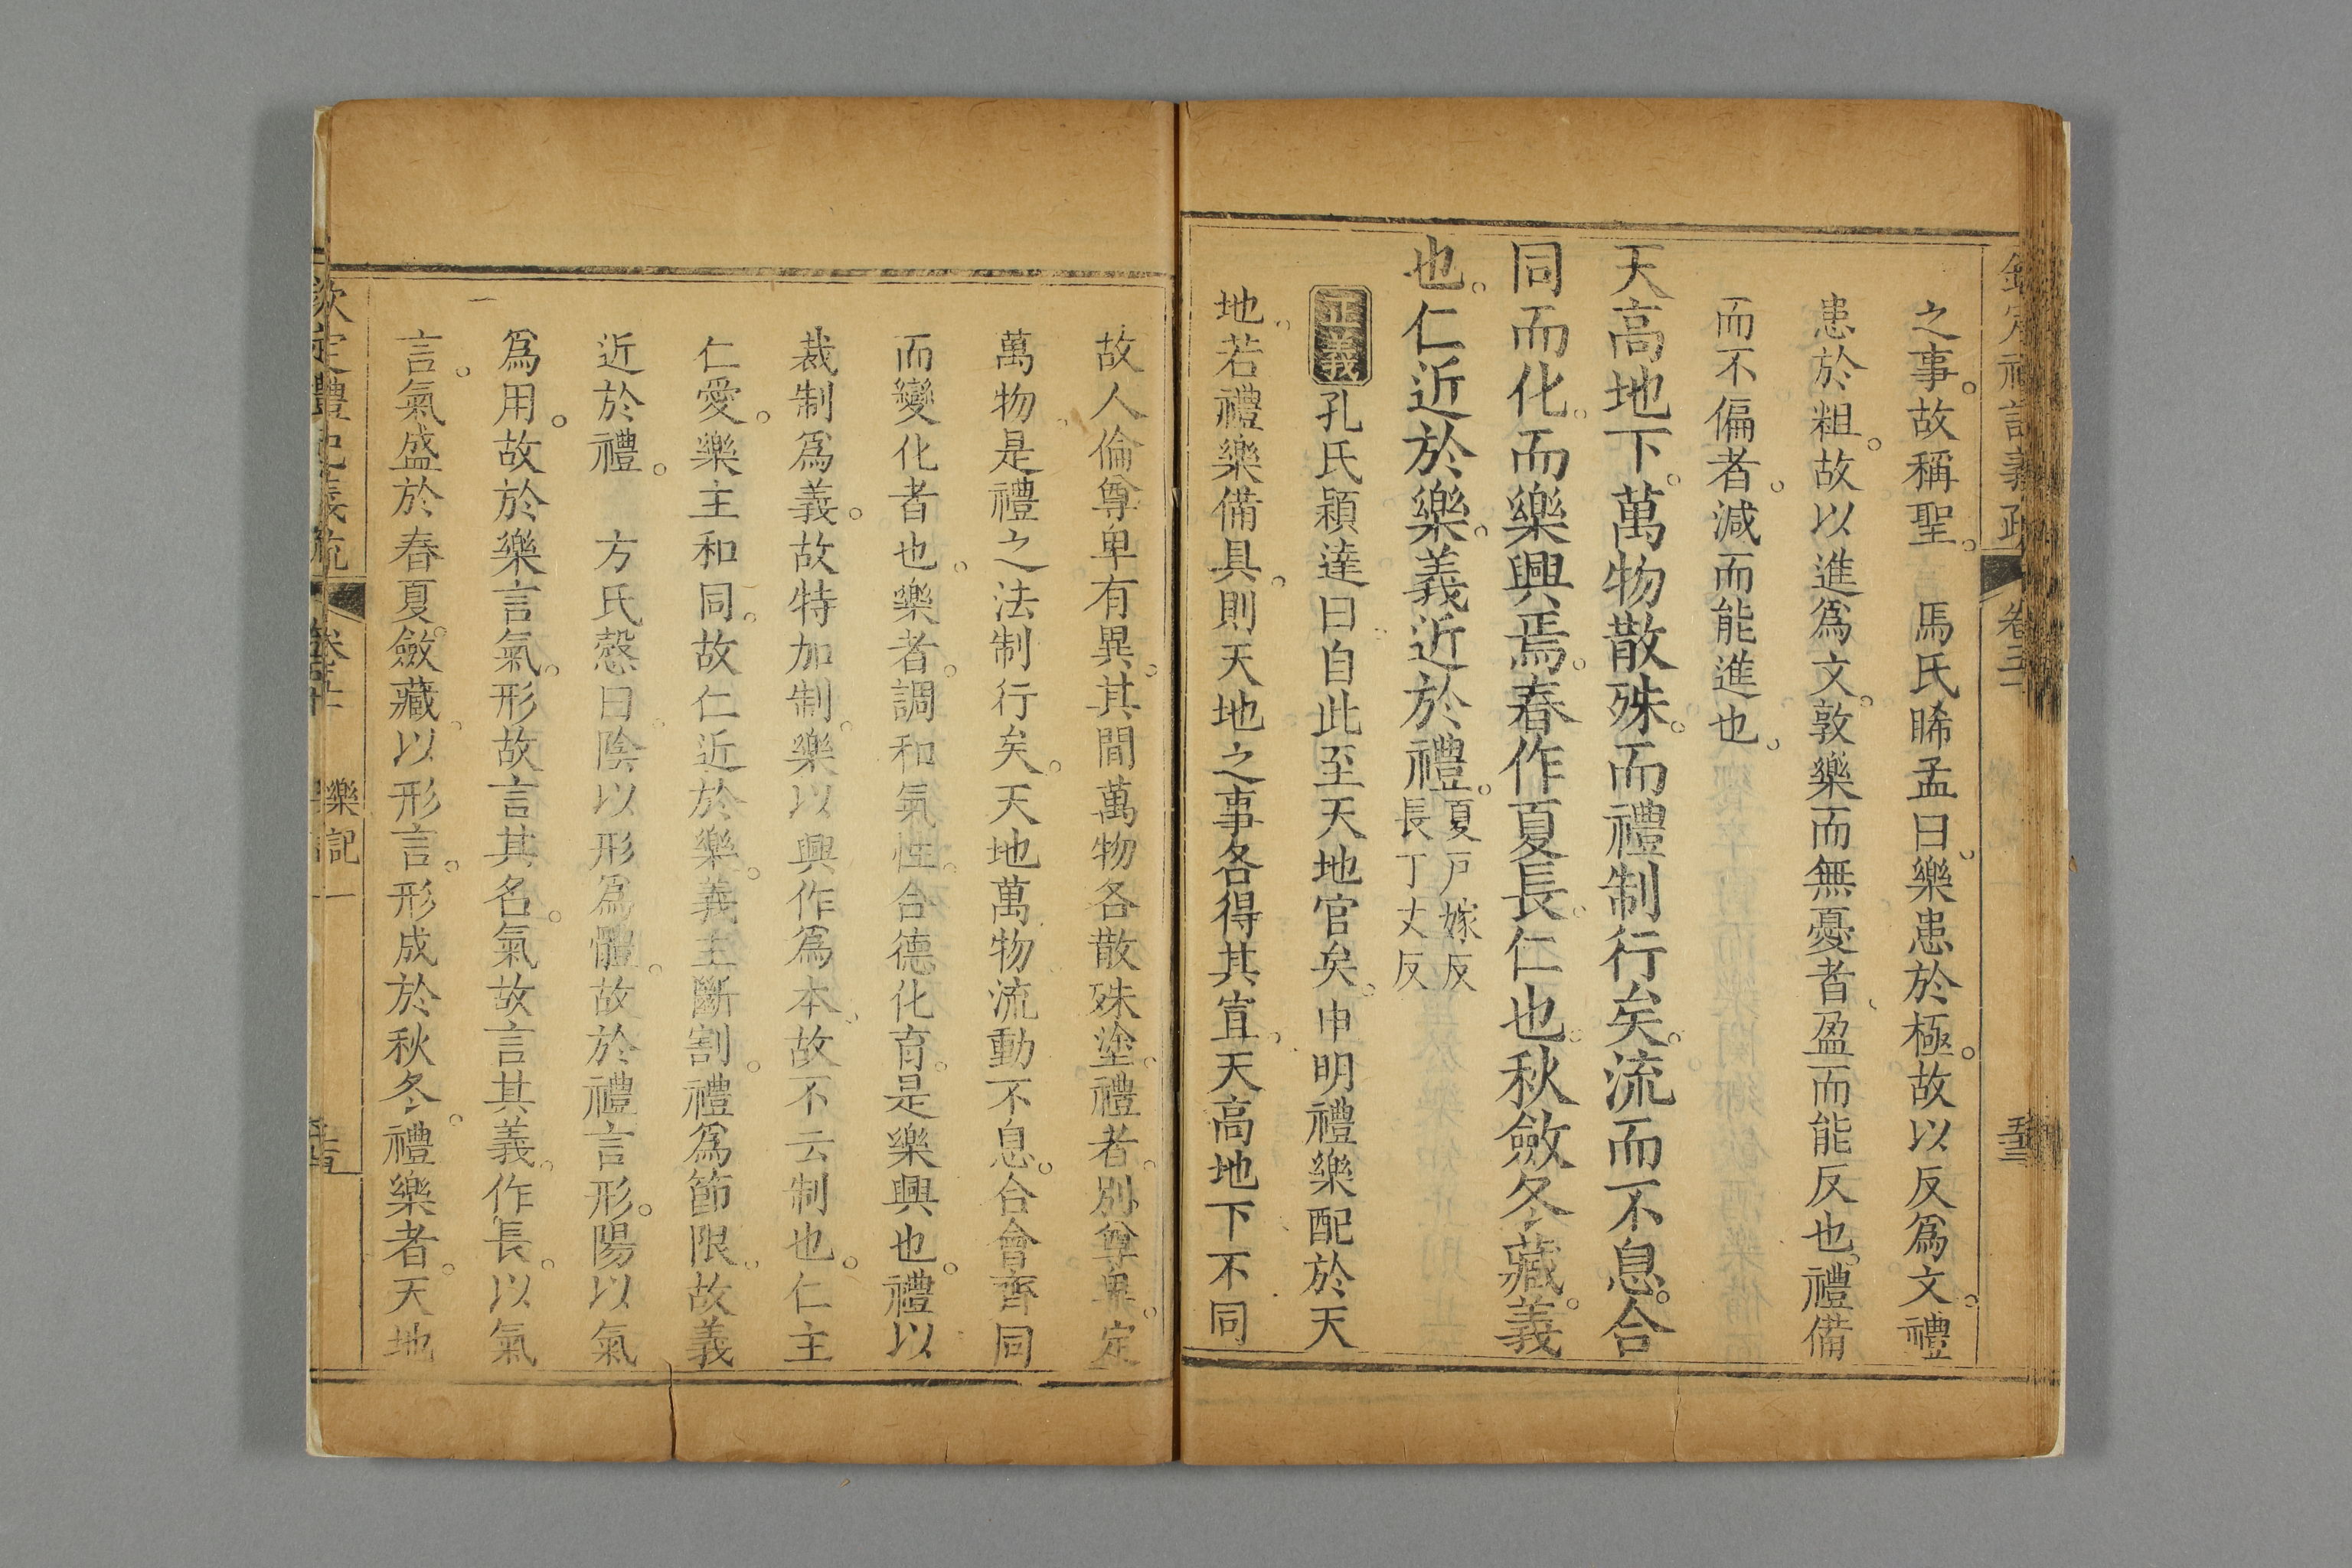 之事故稱聖　馬氏睎孟曰樂患於極故以反爲文禮
患於粗故以進爲文敦樂而無憂者盈而能反也禮備
而不偏者減而能進也
天高地下萬物散殊而禮制行矣流而不息合
同而化而樂興焉春作夏長仁也秋斂冬藏義
也仁近於樂義近於禮夏戸嫁反長丁丈反
正義孔氏穎達曰自此至天地官矣申明禮樂配於天
地若禮樂備具則天地之事各得其宜天高地下不同
故人倫尊卑有異其間萬物各散殊塗禮者別尊卑定
萬物是禮之法制行矣天地萬物流動不息合會齊同
而變化者也樂者調和氣性合德化育是樂興也禮以
裁制爲義故特加制樂以興作爲本故不云制也仁主
仁愛樂主和同故仁近於樂義主斷割禮爲節限故義
近於禮　方氏慤曰陰以形爲體故於禮言形陽以氣
爲用故於樂言氣形故言其名氣故言其義作長以氣
言氣盛於春夏斂藏以形言形成於秋冬禮樂者天地
欽定禮記義疏
樂記